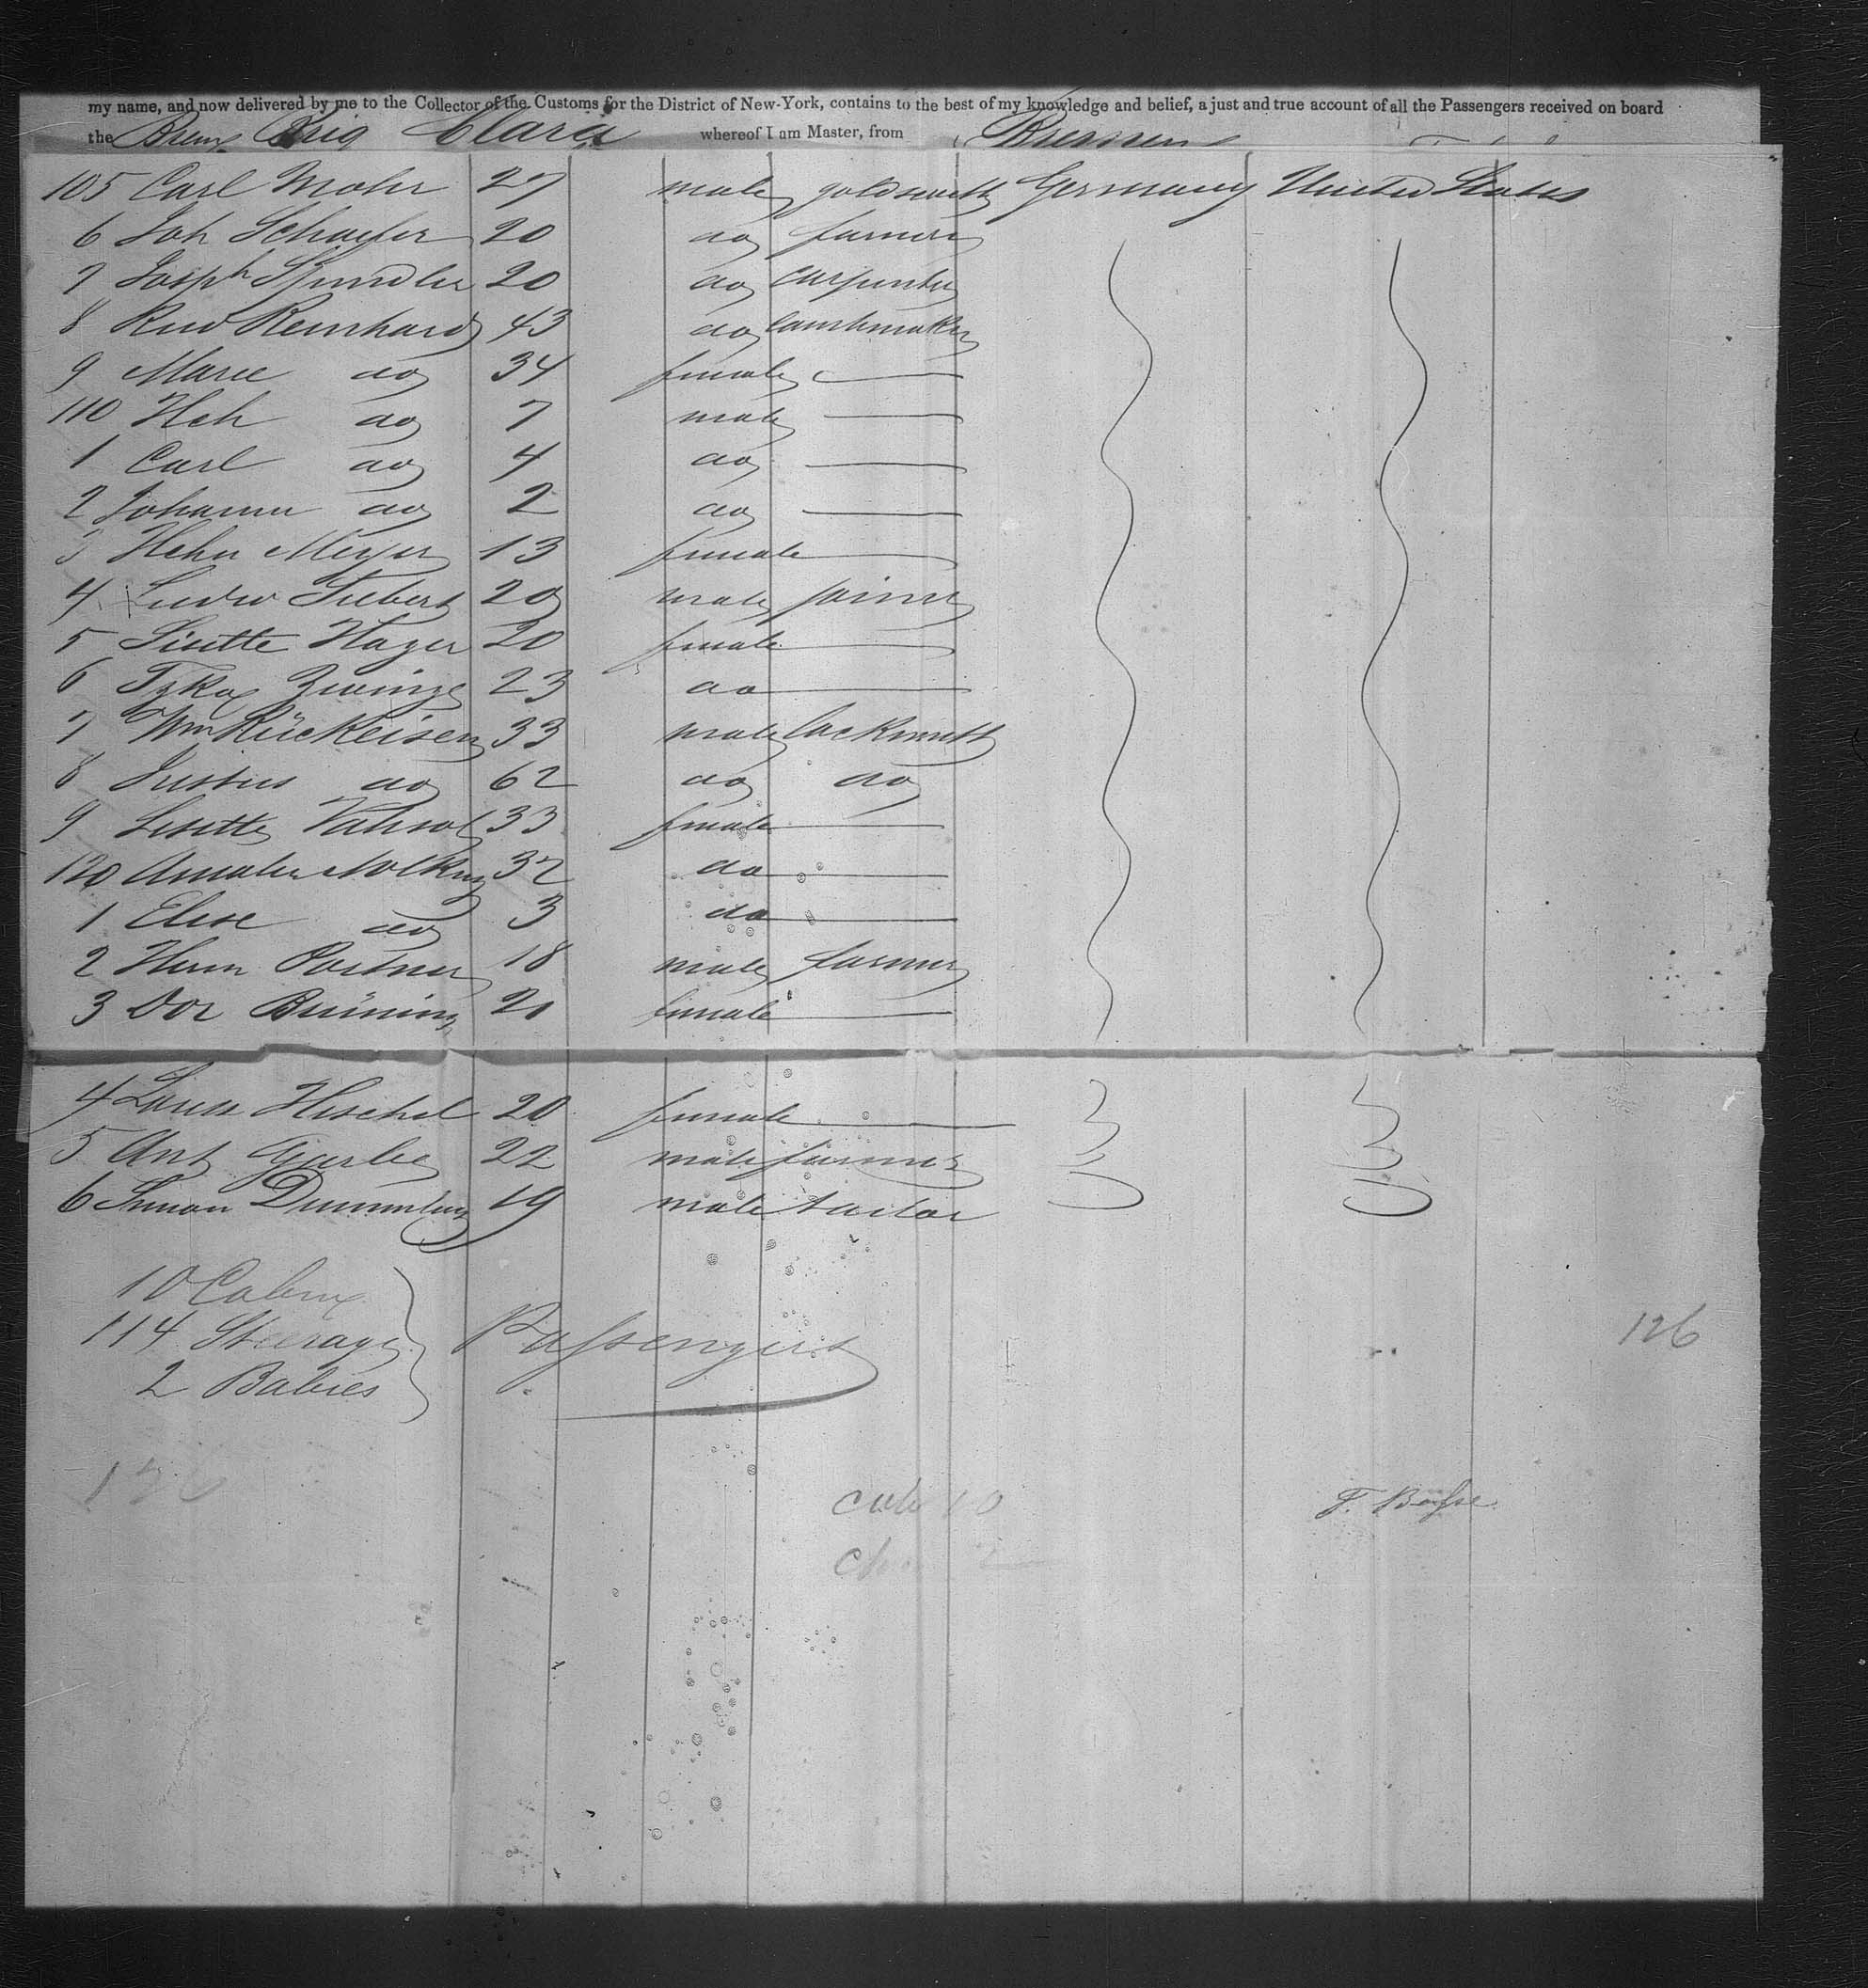 my name, and now delivered by me to the Collector of the Customs for the District of New-York, contains to the best of my knowledge and belief, a just and true account of all the Passengers received on board
the Brem Brig Clara whereof I am Master, from Bremen
105 Carl Mohr 27 male goldsmith Germany United States
6 Joh Schaefer 20 do farmer
7 Joseph Spindler 20 do carpenter
8 Rud Reinhard 43 do
9 Marie do 34 female
110 Hch do 7 male
1 Carl do 4 do
2 Johann do 2 do
3 Meyer 13 female
4 Ludw Siebert 20 male joiner
5 Lisette Hager 20 female
6 23 do
7 Wm Rückeisen 33 male locksmith
8 Justus do 62 do do
9 Lisette 33 female
120 Amalie 32 do
1 Elise do 3 do
2 Herm Portner 18 male farmer
3 Dor Brüning 20 female
4 Louise Hischel 20 female
5 Ant 22 male farmer
6 Simon 19 male tailor
10 Cabin
114 Steerage Passengers 126
2 Babies
126
cab 10
2